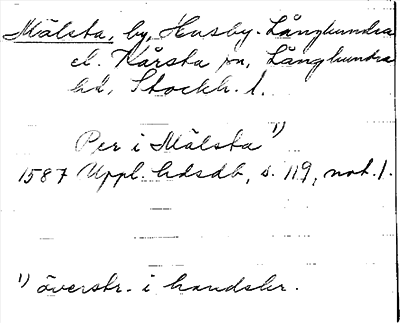 Mälsta, by, Husby-Långhundra
el. Kårsta sn, Långhundra
hd, Stockh. l.
Per i Mälsta 1)
1587 Uppl. hdsdb, s. 119, not. 1.
1) överstr. i handskr.